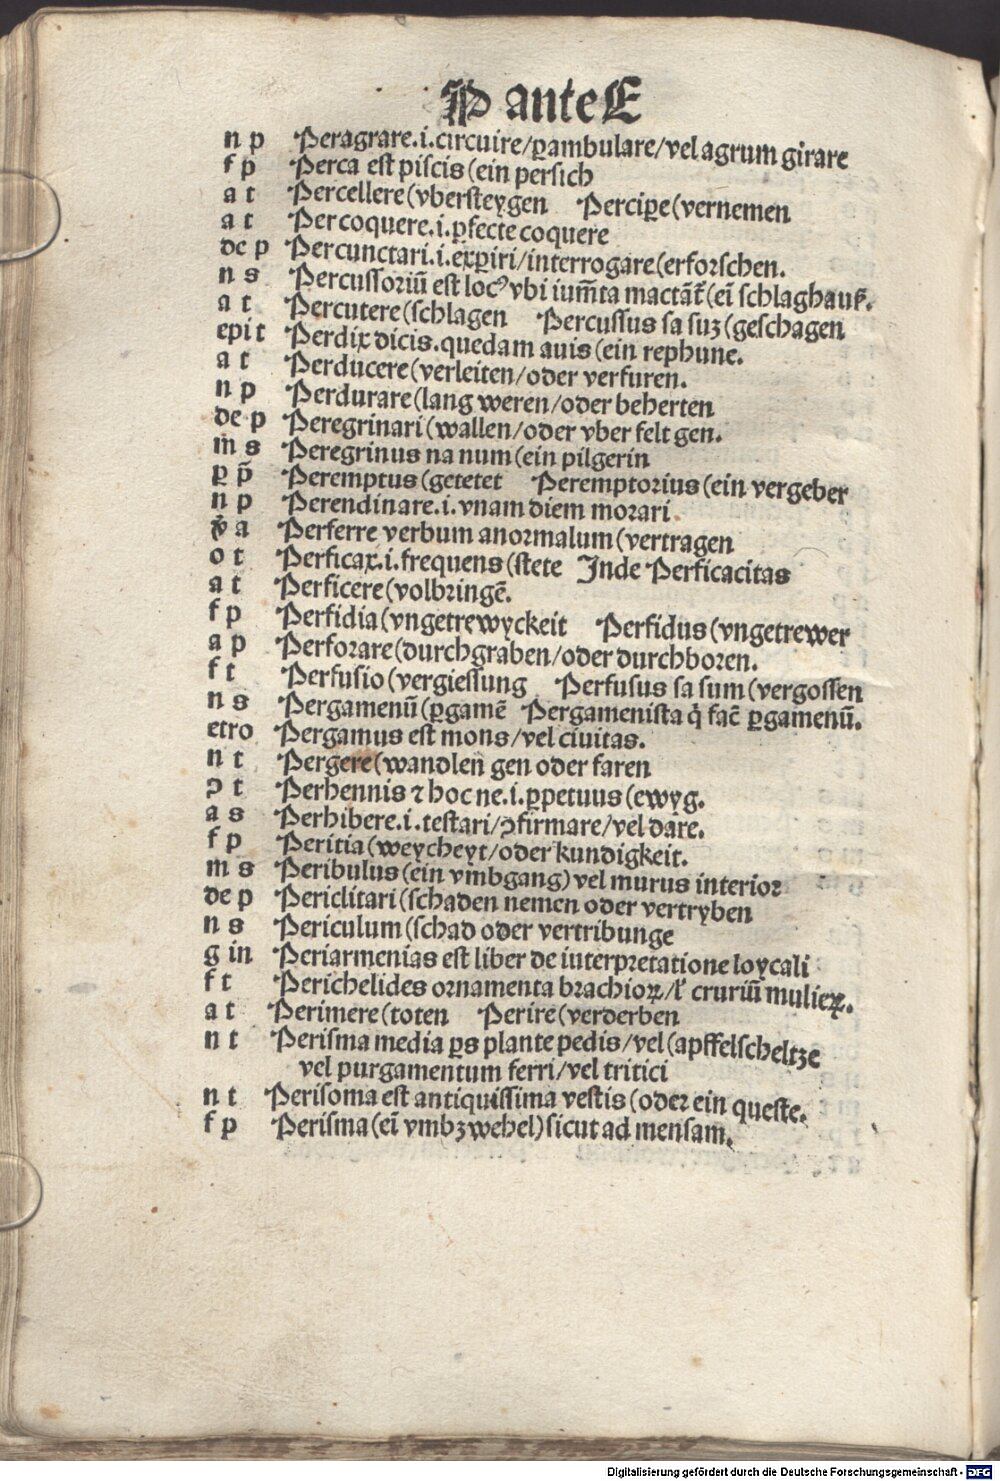 P ante E
n p Peragrare.i.circuire/ꝑambulare/vel agrum girare
f p Perca est piscis(ein persich
a t Percellere(vbersteygen Percipe(vernemen
a t Percoquere.i.ꝑfecte coquere
de p Percunctari.i.exꝑiri/interrogare(erforschen.
n s Percussoriū est locꝰ vbi ium̄ta mactāt̄(eī schlaghauß.
a t Percutere(schlagen Percussus sa suꝫ(geschagen
epi t Perdix dicis.quedam auis(ein rephune.
a t Perducere(verleiten/oder verfuren.
n p Perdurare(lang weren/oder beherten
de p Peregrinari(wallen/oder vber felt gen.
m̄ s Peregrinus na num(ein pilgerin
ꝑ p̄ Peremptus(getetet Peremptorius(ein vergeber
n p Perendinare.i.vnam diem morari
v̄ a Perferre verbum anormalum(vertragen
o t Perficax.i.frequens(stete Inde Perficacitas
a t Perficere(volbringē.
f p Perfidia(vngetrewyckeit Perfidus(vngetrewer
a p Perforare(durchgraben/oder durchboren.
f t Perfusio(vergiessung Perfusus sa sum(vergossen
n s Pergamenū(ꝑgamē Pergamenista q̇ fac̄ ꝑgamenū.
etro Pergamus est mons/vel ciuitas.
n t Pergere(wandlen gen oder faren
ↄ t Perhennis ⁊ hoc ne.i.ꝑpetuus(ewyg.
a s Perhibere.i.testari/ↄfirmare/vel dare.
f p Peritia(weycheyt/oder kundigkeit.
m s Peribulus(ein vmbgang)vel murus interior
de p Periclitari(schaden nemen oder vertryben
n s Periculum(schad oder vertribunge
g in Periarmenias est liber de interpretatione loycali
f t Perichelides ornamenta brachioꝝ/ƚ cruriū mulieꝝ.
a t Perimere(toten Perire(verderben
n t Perisma media ꝑs plante pedis/vel(apffelscheltze
vel purgamentum ferri/vel tritici
n t Perisoma est antiquissima vestis(oder ein queste.
f p Perisma(eī vmbzwehel)sicut ad mensam.
Digitalisierung gefördert durch die Deutsche Forschungsgemeinschaft - DFG